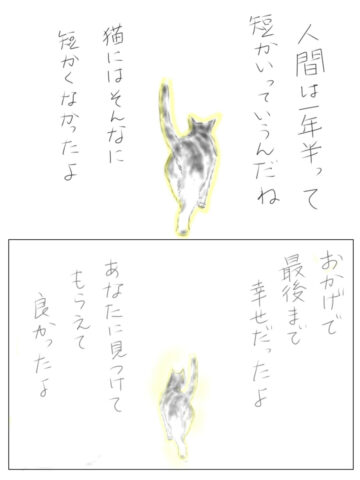 人間は一年半って
短かいっていうんだね
猫にはそんなに
短かくなかったよ
おかげで
最後まで
幸せだったよ
あなたに見つけて
もらえて
良かったよ